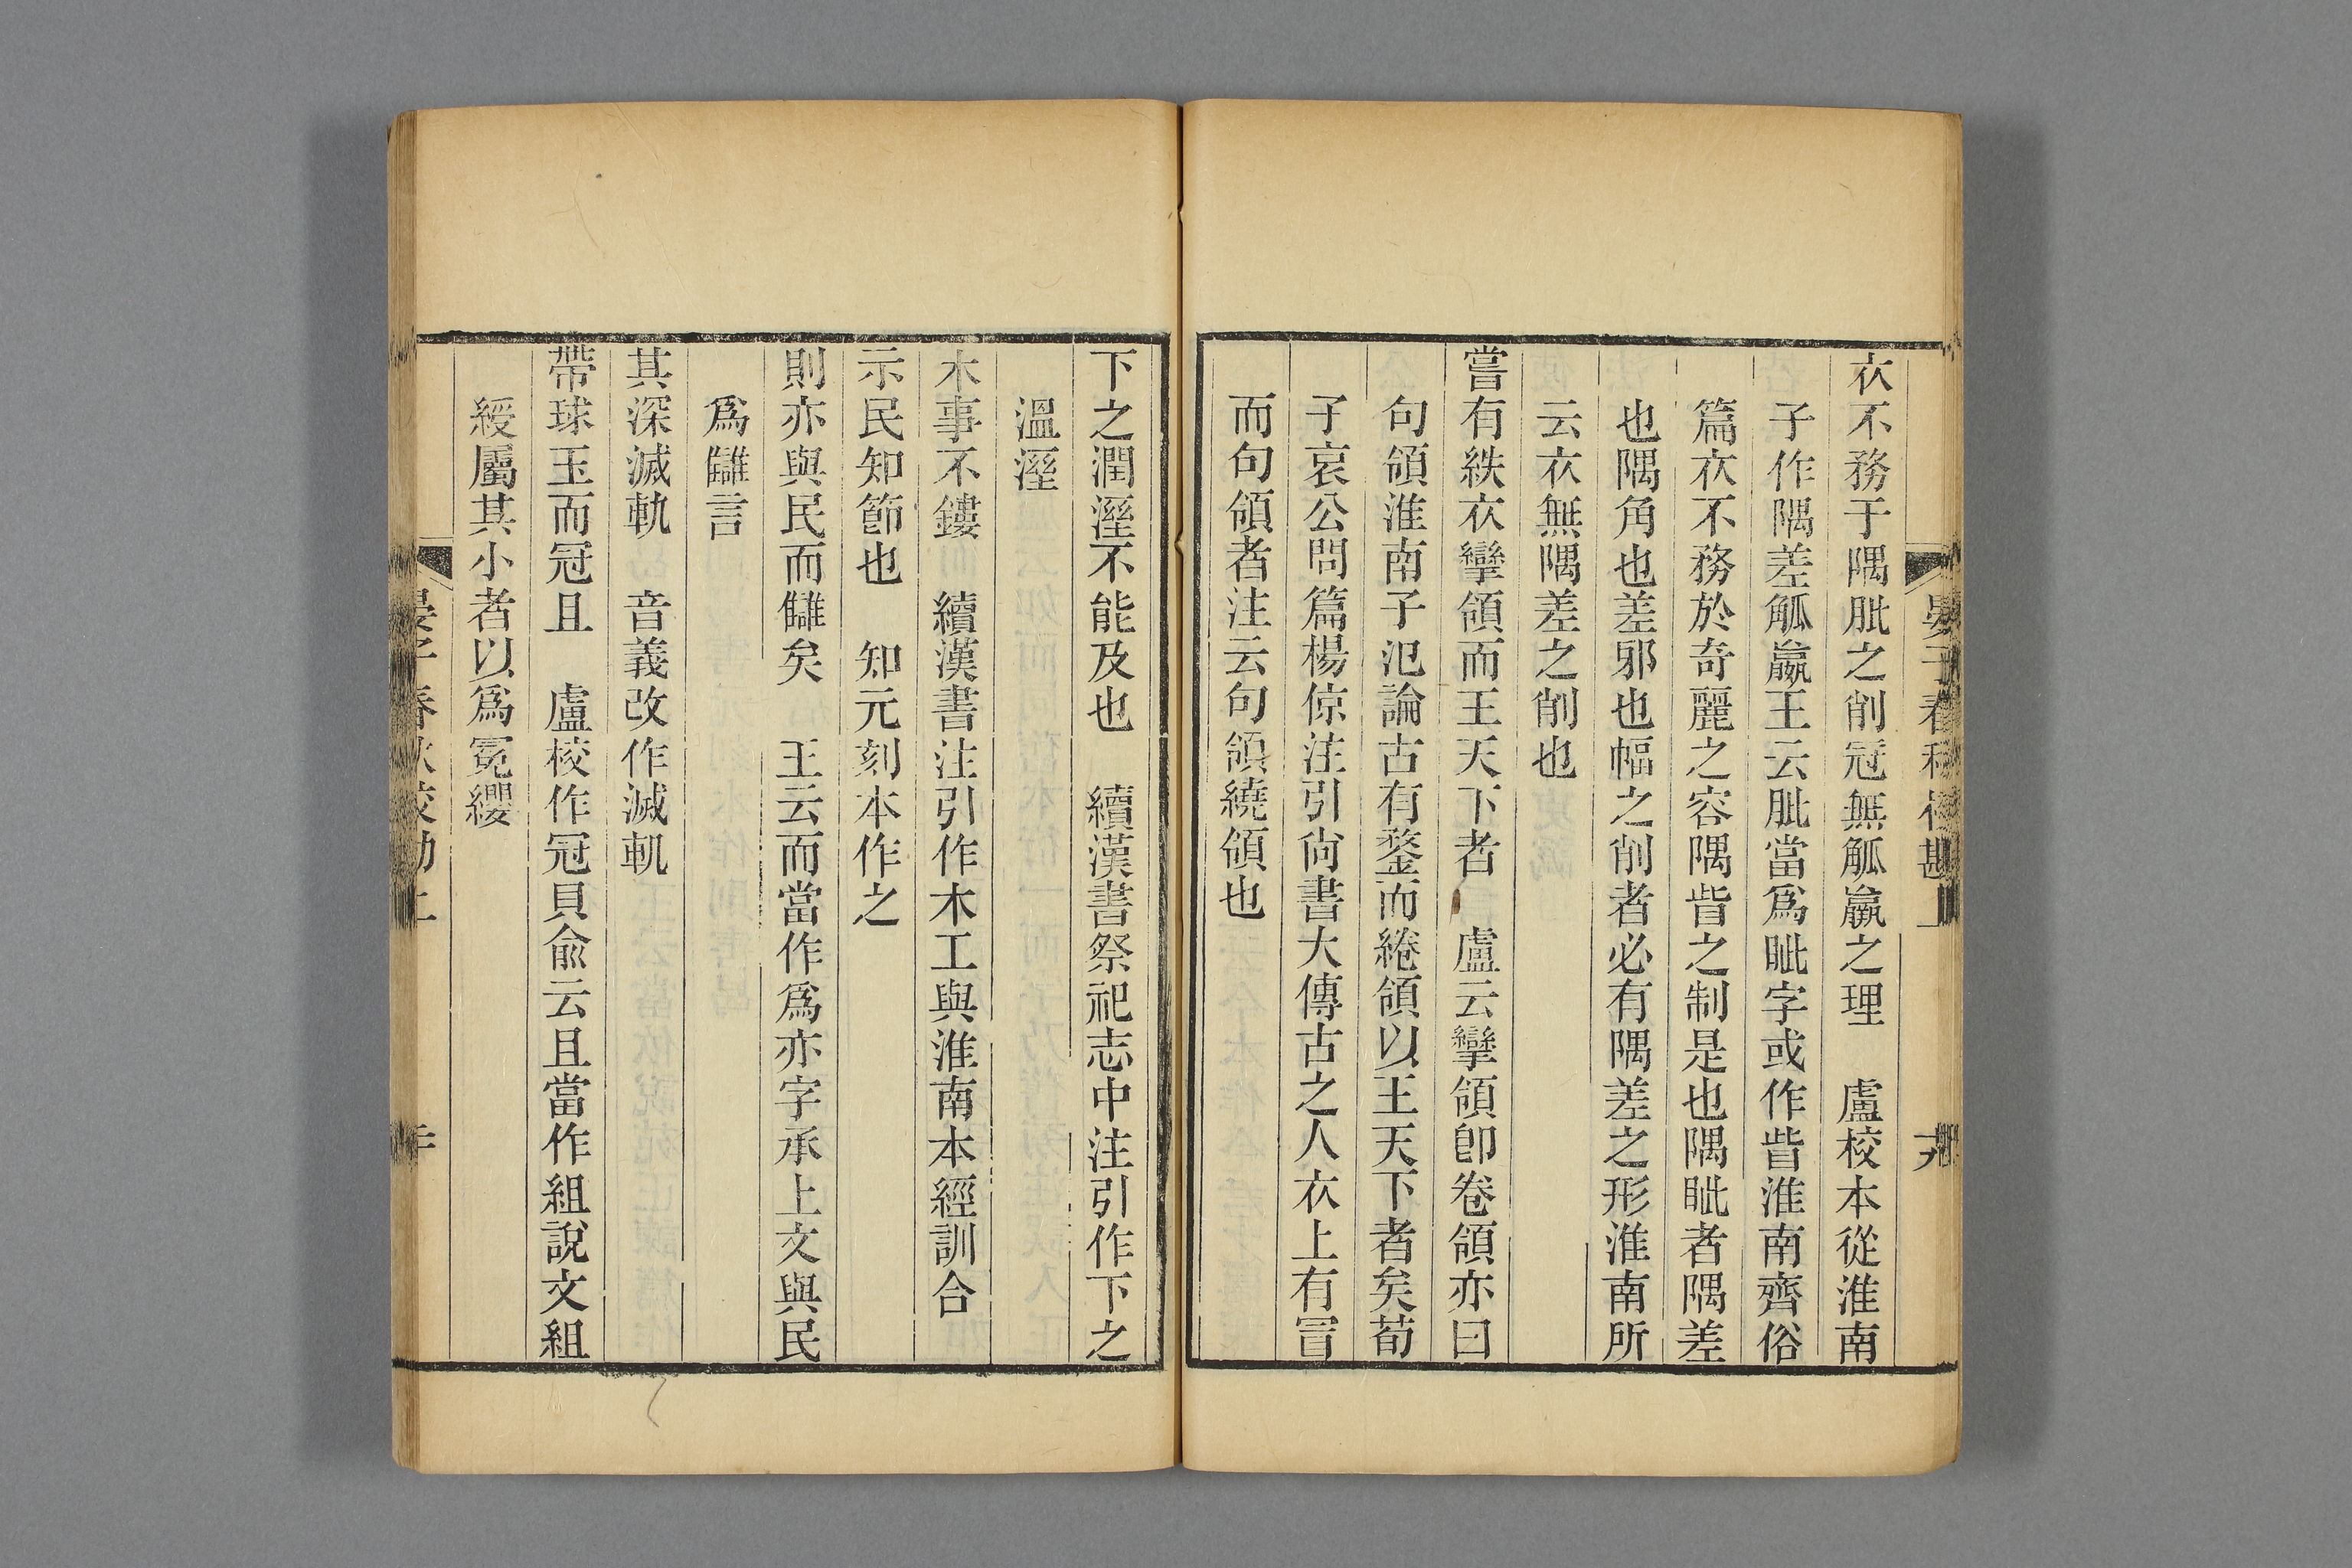 晏子春秋校勘上　十九
衣不務于隅肶之削冠無觚蠃之理　盧校本從淮南
子作隅差觚蠃王云肶當爲眦字或作眥淮南齊俗
篇衣不務於奇麗之容隅眥之制是也隅眦者隅差
也隅角也差邪也幅之削者必有隅差之形淮南所
云衣無隅差之削也
嘗有紩衣攣領而王天下者　盧云攣領卽卷領亦曰
句領淮南子氾論古有鍪而綣領以王天下者矣荀
子哀公問篇楊倞注引尙書大傳古之人衣上有冒
而句領者注云句領繞領也
下之潤溼不能及也　續漢書祭祀志中注引作下之
溫溼
木事不鏤　續漢書注引作木工與淮南本經訓合
示民知節也　知元刻本作之
則亦與民而讎矣　王云而當作爲亦字承上文與民
爲讎言
其深滅軌　音義改作滅軓
帶球玉而冠且　盧校作冠貝俞云且當作組說文組
綬屬其小者以爲冕纓
晏子春秋校勘上　二十